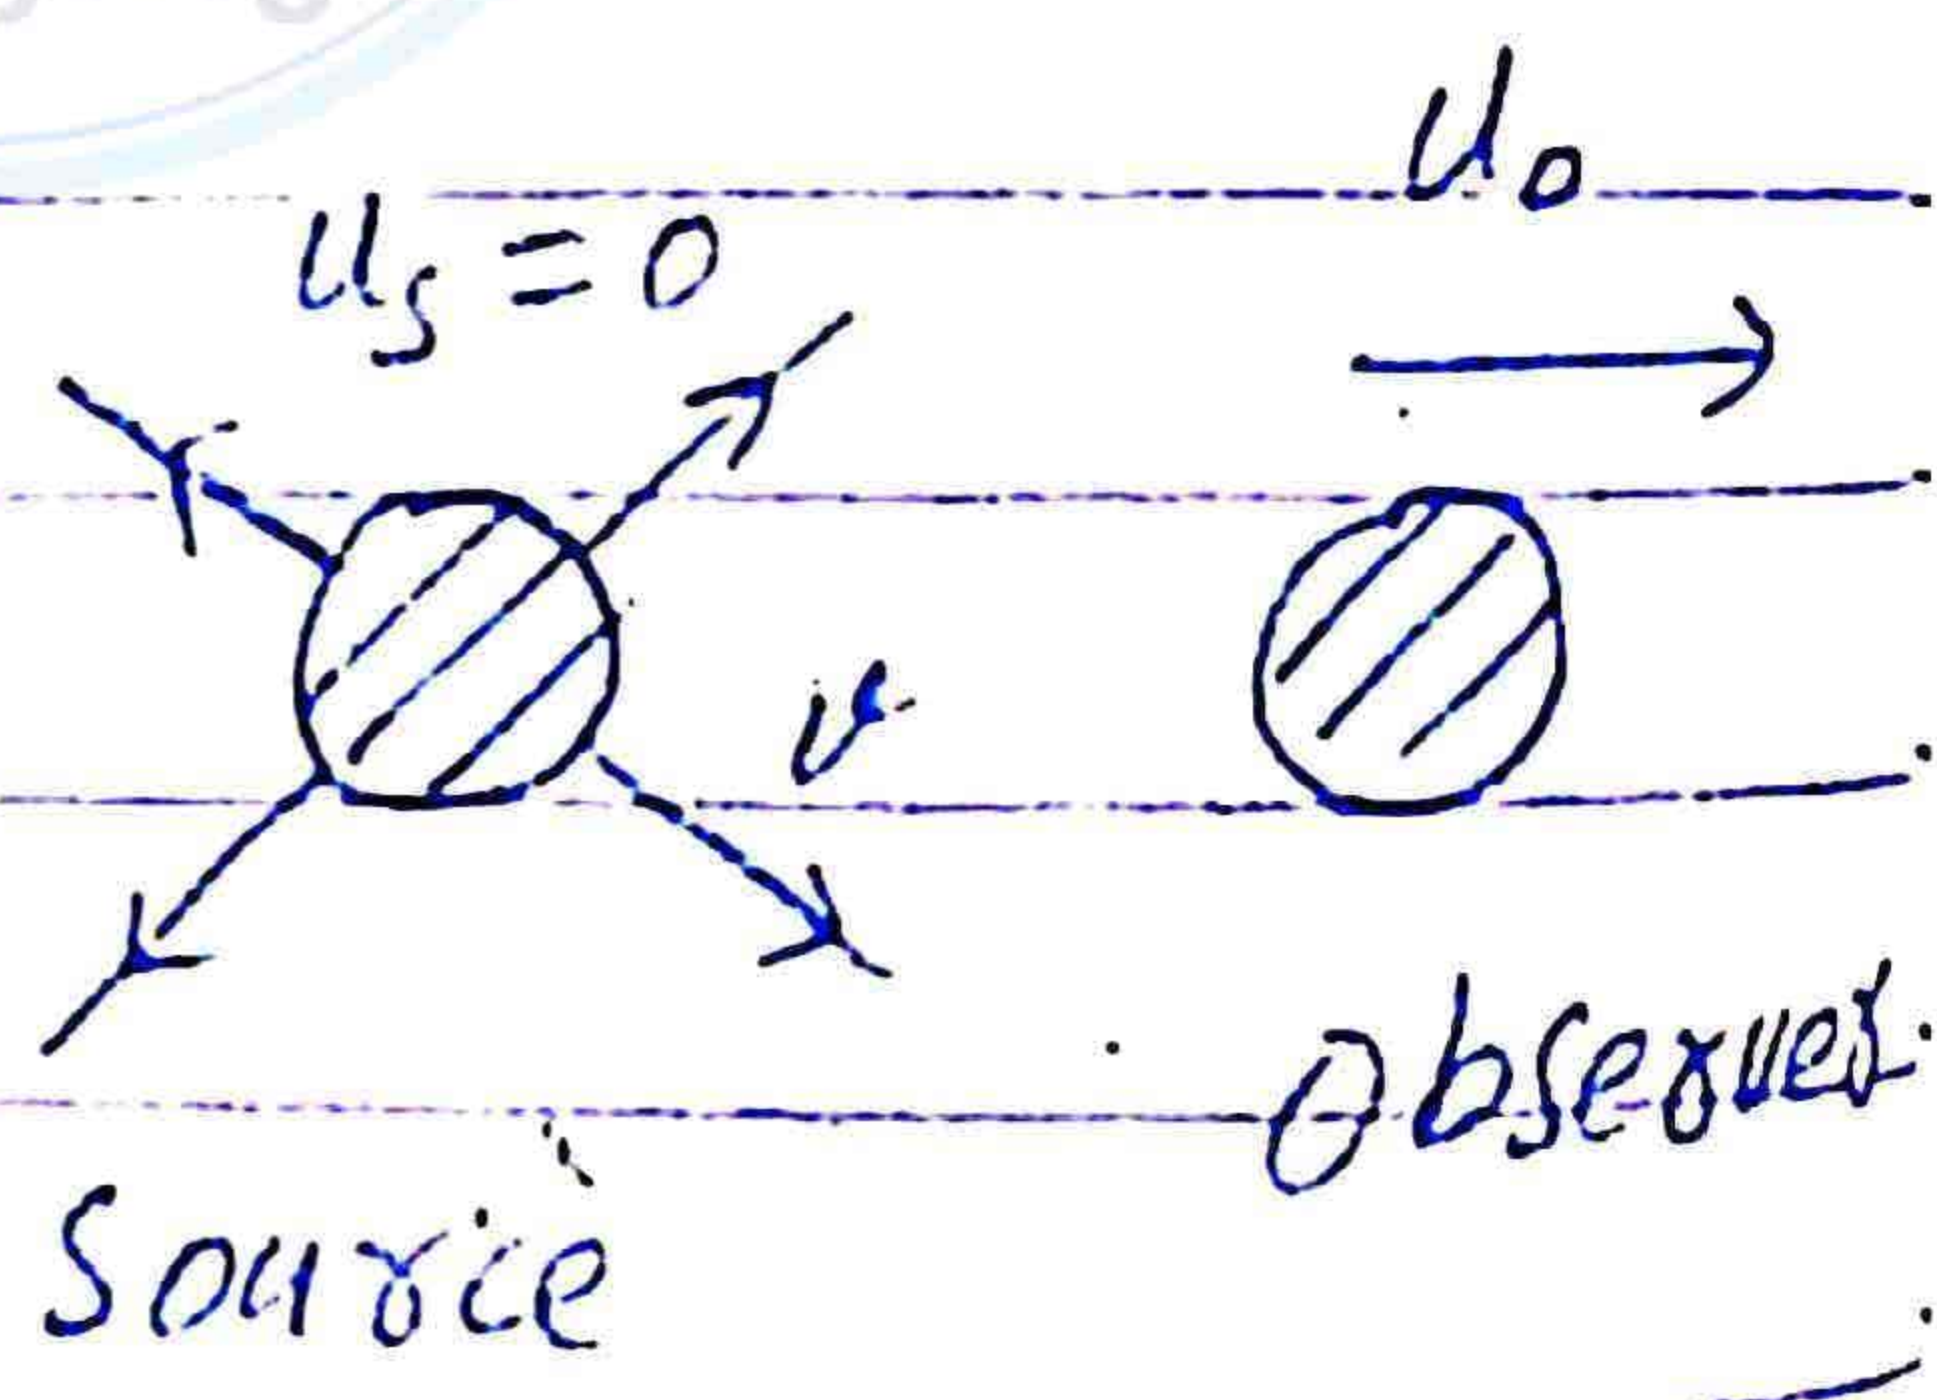 u₀
uₛ = 0
v
Observer
Source